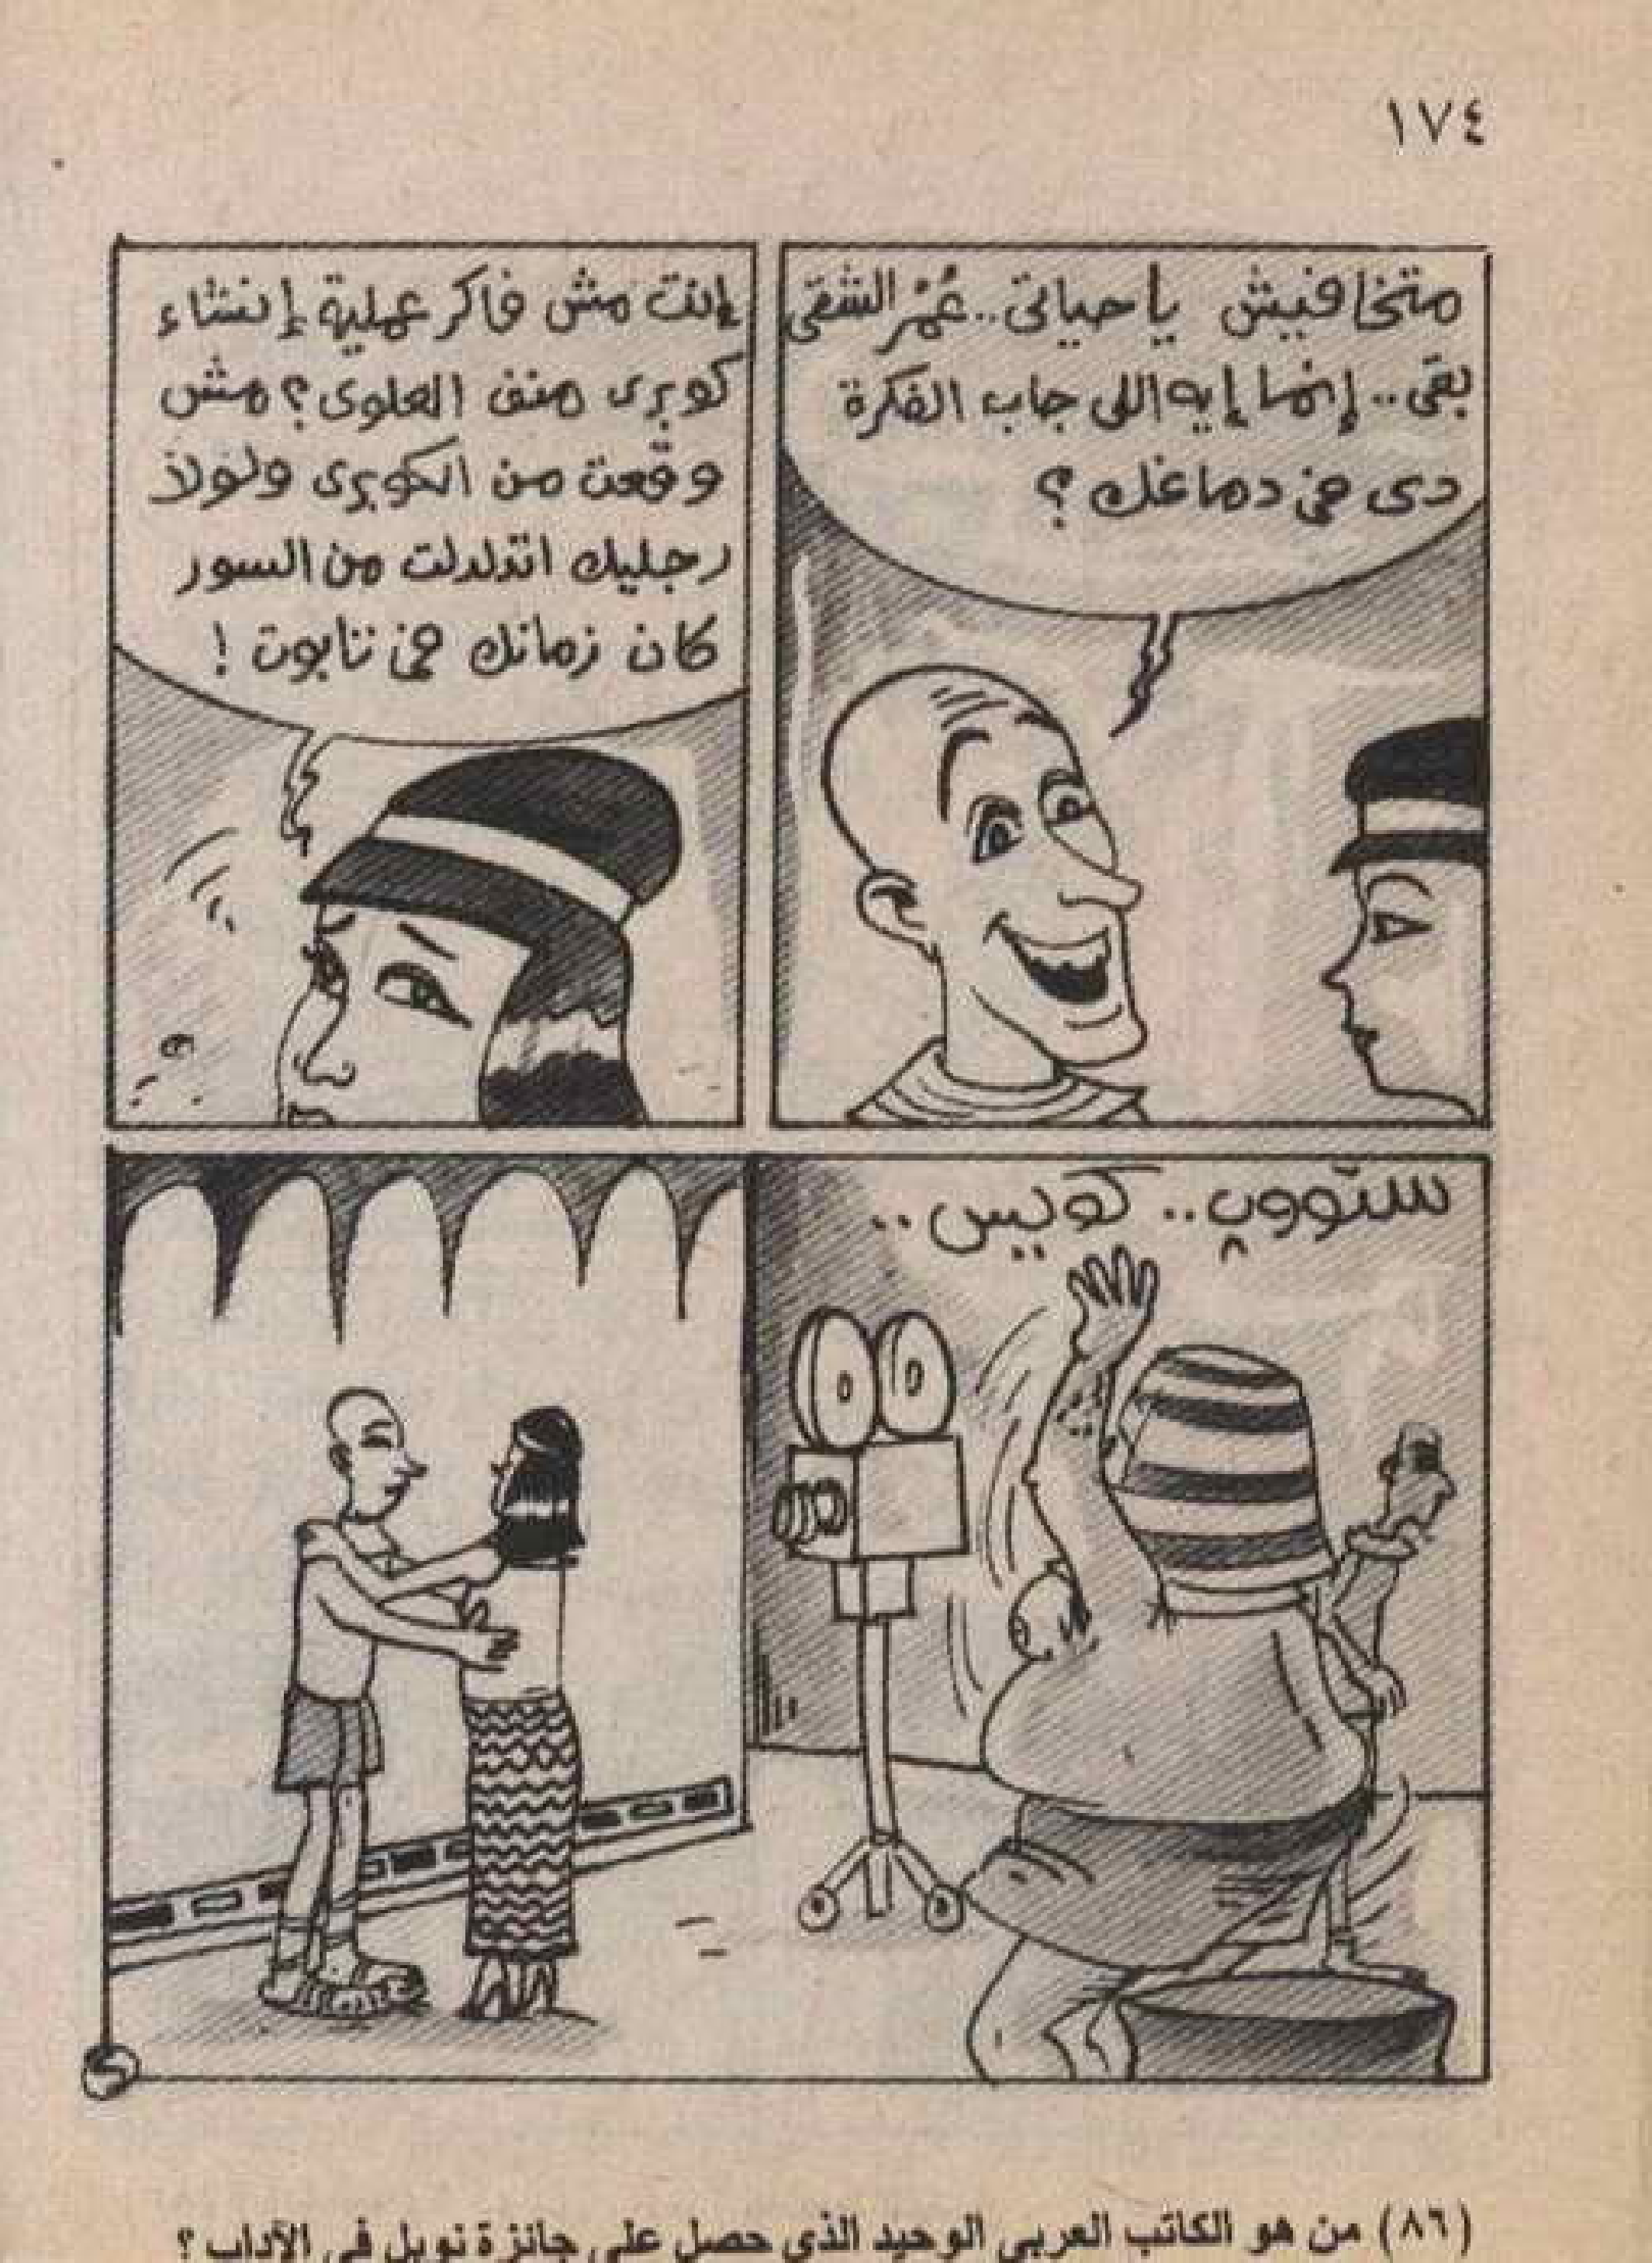 ١٧٤
متخافيش ياحياتى.. عُمْر الشقى
بقى.. إنما إيه اللى جاب الفكرة
دى فى دماغك ؟
إنت مش فاكر عملية إنشاء
كوبرى منف العلوى؟ مش
وقعت من الكوبرى ولولا
رجليك اتدلدلت من السور
كان زمانك فى تابوت !
ستووپ.. كويس..
(٨٦) من هو الكاتب العربي الوحيد الذي حصل على جائزة نوبل في الآداب ؟